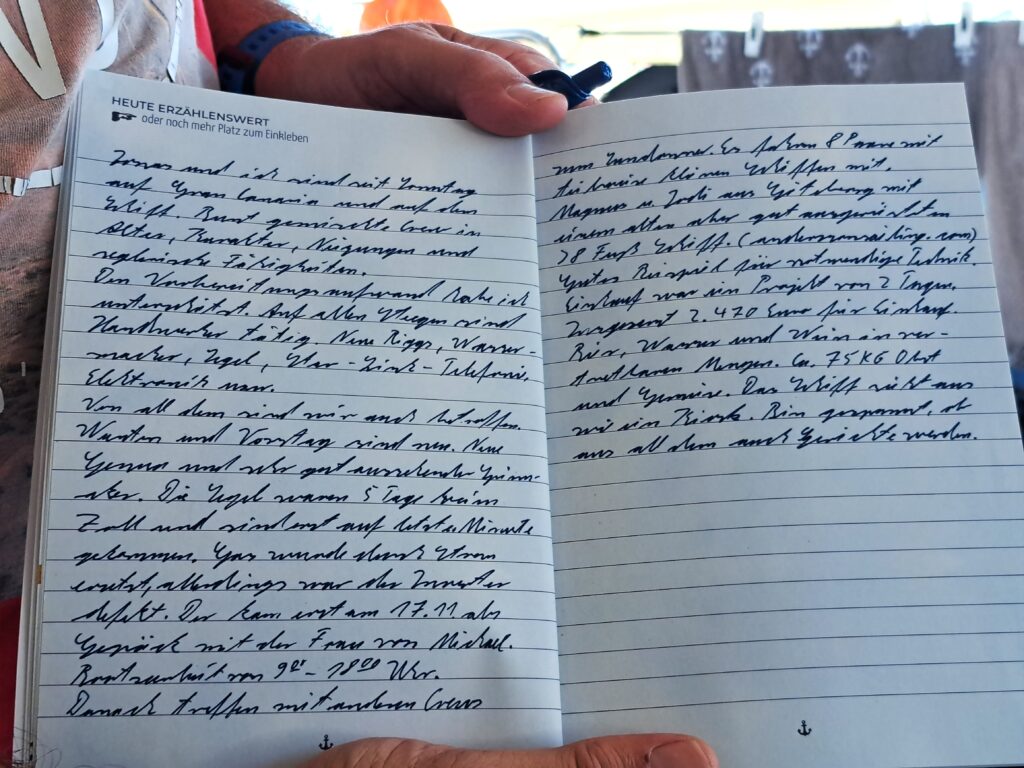 HEUTE ERZÄHLENSWERT
oder noch mehr Platz zum Einkleben
Jonas und ich sind seit Sonntag
auf Gran Canaria und auf dem
Schiff. Bunt gemischte Crew in
Alter, Karakter, Neigungen und
seglerische Fähigkeiten.
Den Vorbereitungsaufwand habe ich
unterschätzt. Auf allen Stegen sind
Handwerker tätig. Neue Riggs, Wasser-
macher, Segel, Star-Link-Telefonie,
Elektronik usw.
Von all dem sind wir auch betroffen.
Wanten und Vorstag sind neu. Neue
Genua und sehr gut aussehender Spinn-
aker. Die Segel waren 5 Tage beim
Zoll und sind erst auf letzte Minute
gekommen. Gas wurde durch Strom
ersetzt, allerdings war der Inverter
defekt. Der kam erst am 17.11. als
Gepäck mit der Frau von Michael.
Bootsarbeit von 9⁰⁰ - 18⁰⁰ Uhr.
Danach treffen mit anderen Crews
zum Sundowner. Es fahren 8 Paare mit
teilweise kleinen Schiffen mit.
Magnus u. aus Göteborg mit
einem alten aber gut ausgerüsteten
38 Fuß Schiff.
Gutes Beispiel für notwendige Technik.
Einkauf war ein Projekt von 2 Tagen.
Insgesamt 2.470 Euro für Einkauf.
Bier, Wasser und Wein in ver-
tretbaren Mengen. Ca. 75 KG Obst
und Gemüse. Das Schiff sieht aus
wie ein Kiosk. Bin gespannt, ob
aus all dem auch Gerichte werden.